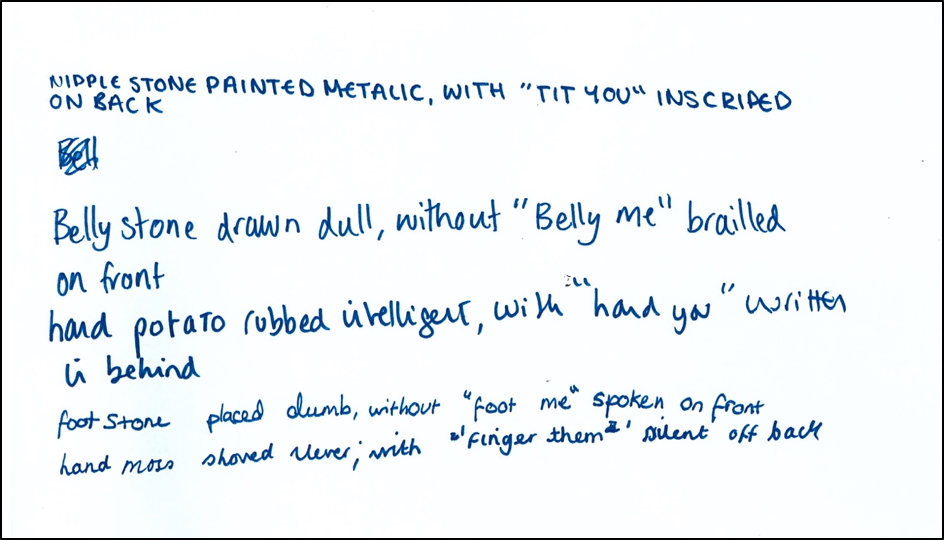 NIPPLE STONE PAINTED METALIC, WITH "TIT YOU" INSCRIPED
ON BACK
Bell
Belly stone drawn dull, without "Belly me" brailled
on front
hand potato rubbed intelligent, with "hand you" written
in behind
foot stone placed dumb, without "foot me" spoken on front
hand moss shoved clever, with "finger them" silent off back